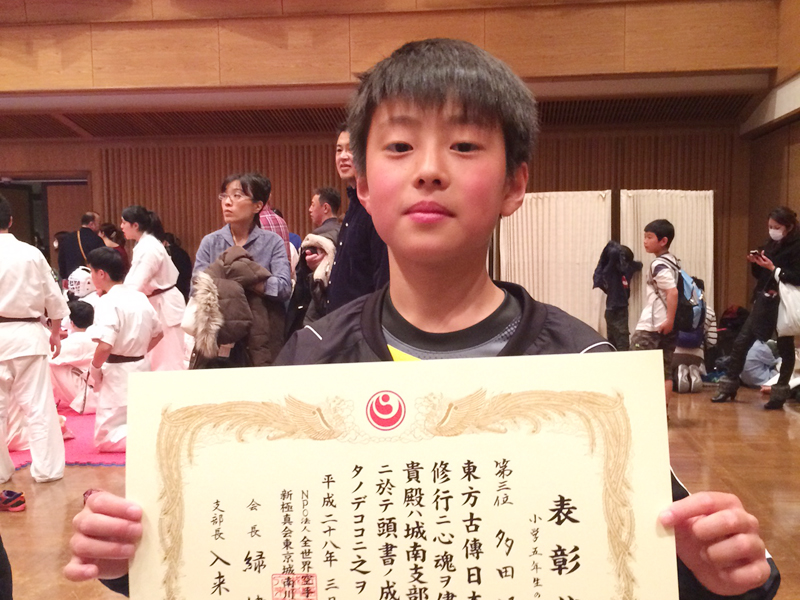 表彰
小学五年生の
第三位 多田
東方古傳日本
修行ニ心魂ヲ
貴殿ハ城南支部
ニ於テ頭書ノ成
タノデココニ之ヲ
平成二十八年 三月
NPO法人全世界空手
新極真会東京城南川
会長 緑
支部長 入来